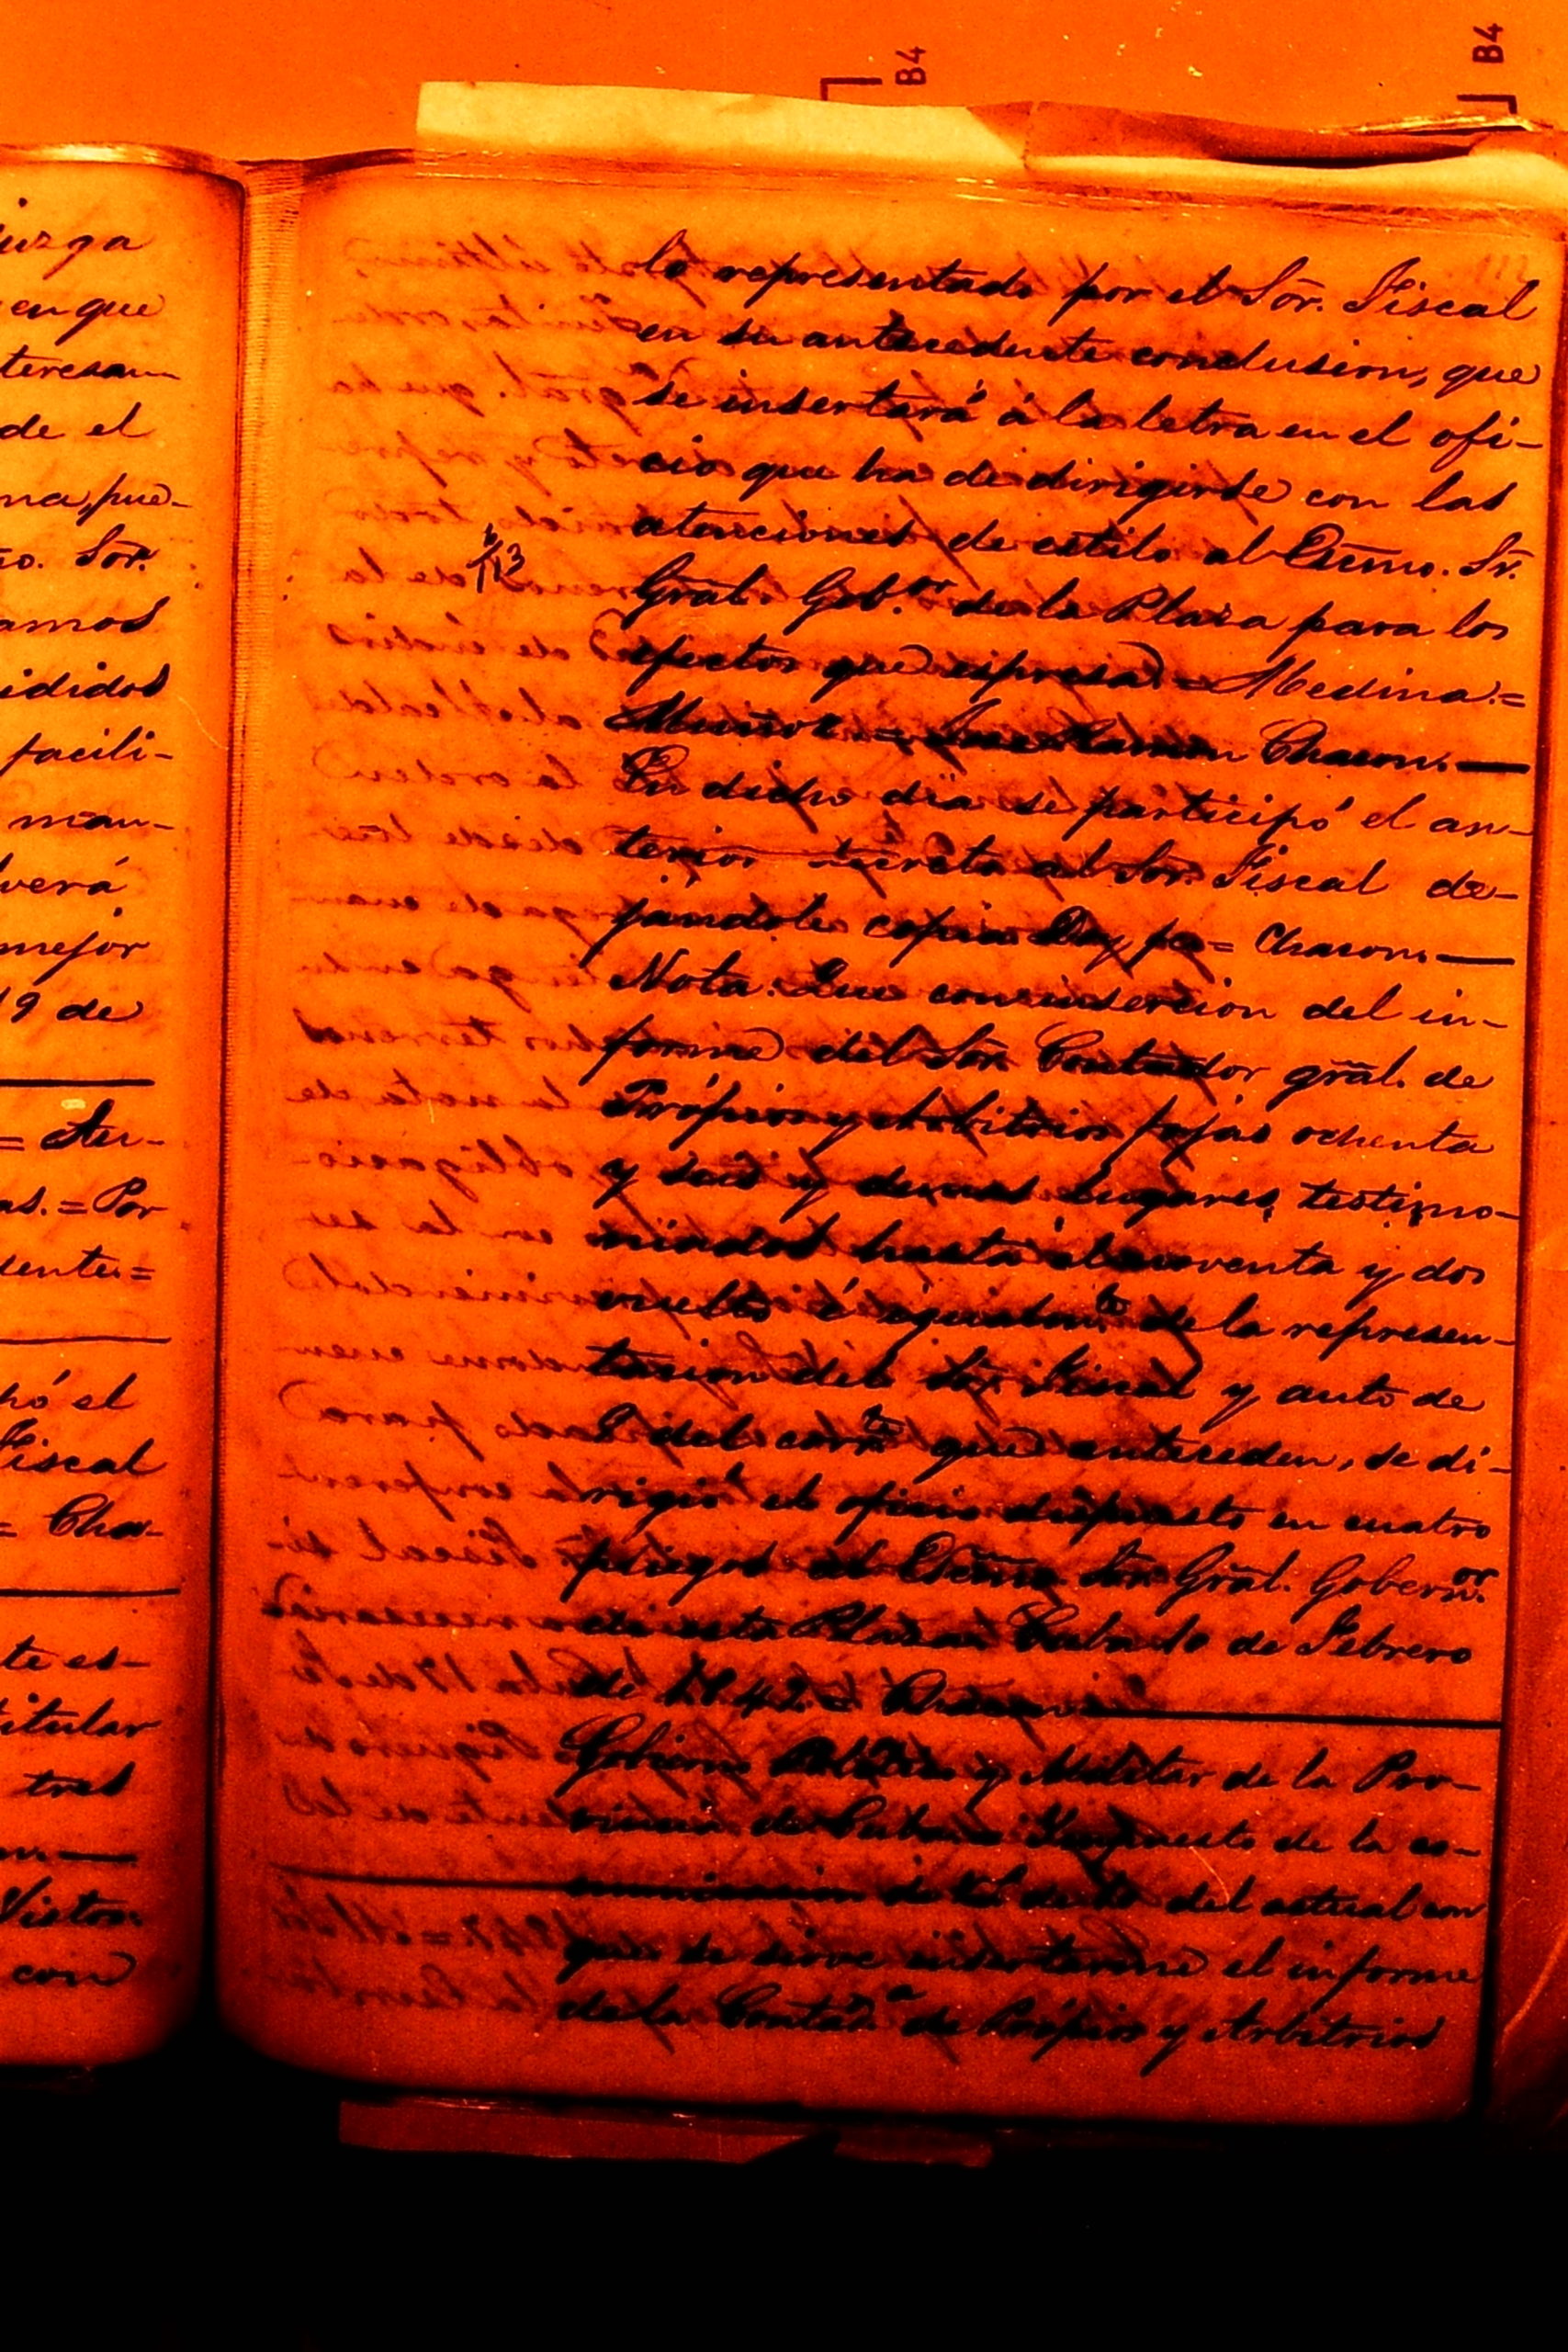 B4
B4
urga
en que
teresan-
de el
ma, pue-
no. Sōr.
amos
ididos
facili-
man-
verá
mejor
19 de
= Au-
as. = Por
dente =
pó el
Fiscal
= Cha-
te es-
titular
tres
Victor
con
lo representado por el Sōr. Fiscal
en su antecedente conclusion, que
se insertará á la letra en el ofi-
cio que ha de dirigirse con las
atenciones de estilo al Escmo. Sr.
Grāl. Gob.or de la Plaza para los
efectos que espresa. = Medina. =
Muñoz = José Ramon Chacon. —
En dicho dia se participó el an-
terior decreto al Sōr. Fiscal de-
jándole copia Doy fe = Chacon. —
Nota. Que con insercion del in-
forme del Sōr. Contador grāl. de
Própios y Arbitrios fojas ochenta
y seis y demas lugares testimo-
niados hasta el noventa y dos
vuelto é igualm.te de la represen-
tacion del Sōr. Fiscal y auto de
del corr.te que anteceden, se di-
rigió el oficio dispuesto en cuatro
pliegos al Escmo. Sōr. Grāl. Gobern.or
de esta Plaza. Cuba de Febrero
de 1842.
Gobierno Politico y Militar de la Pro-
vincia de Cuba = Impuesto de la co-
municacion de V.S. de del actual con
que se sirve insertarme el informe
de la Contad.a de Própios y Arbitrios
113